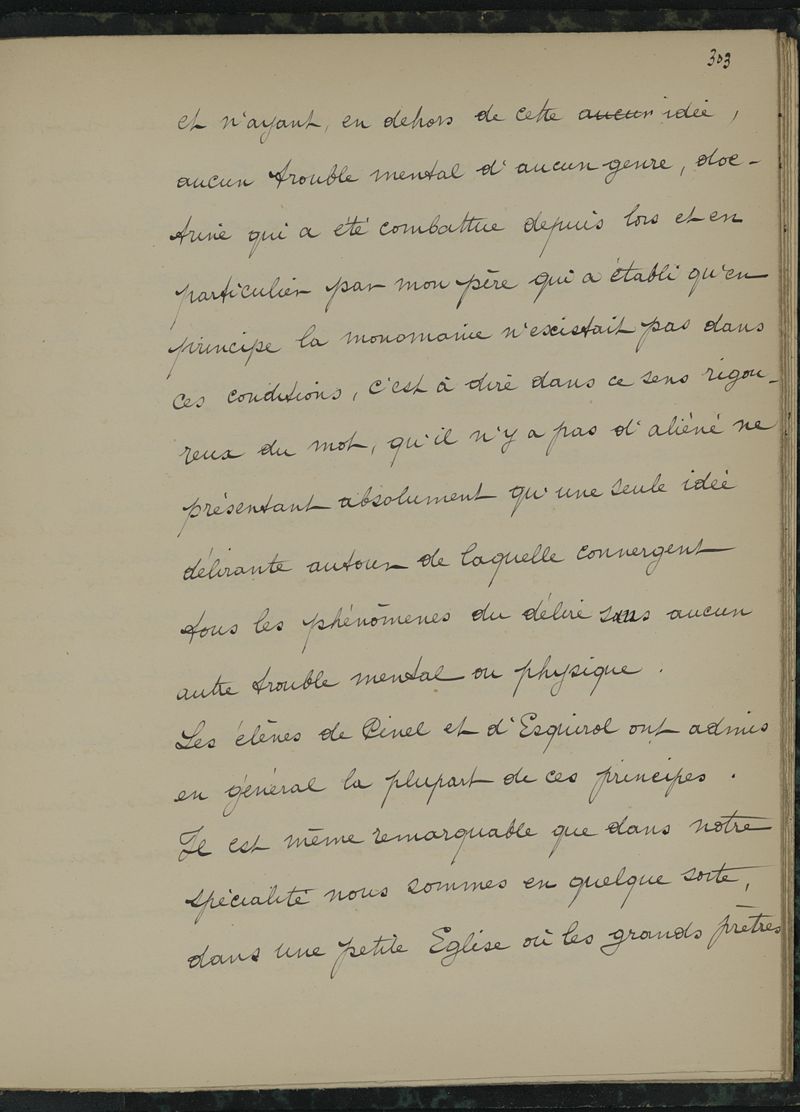 303
et n'ayant, en dehors de cette aucun idée,
aucun trouble mental d'aucun genre, doc-
trine qui a été combattue depuis lors et en
particulier par mon père qui a établi qu'en
principe la monomanie n'existait pas dans
ces conditions, c'est à dire dans ce sens rigou-
reux du mot, qu'il n'y a pas d'aliéné ne
présentant absolument qu'une seule idée
délirante autour de laquelle convergent
tous les phénomènes du délire sans aucun
autre trouble mental ou physique.
Les élèves de Pinel et d'Esquirol ont admis
en général la plupart de ces principes.
Il est même remarquable que dans notre
spécialité nous sommes en quelque sorte,
dans une petite Eglise où les grands prêtres